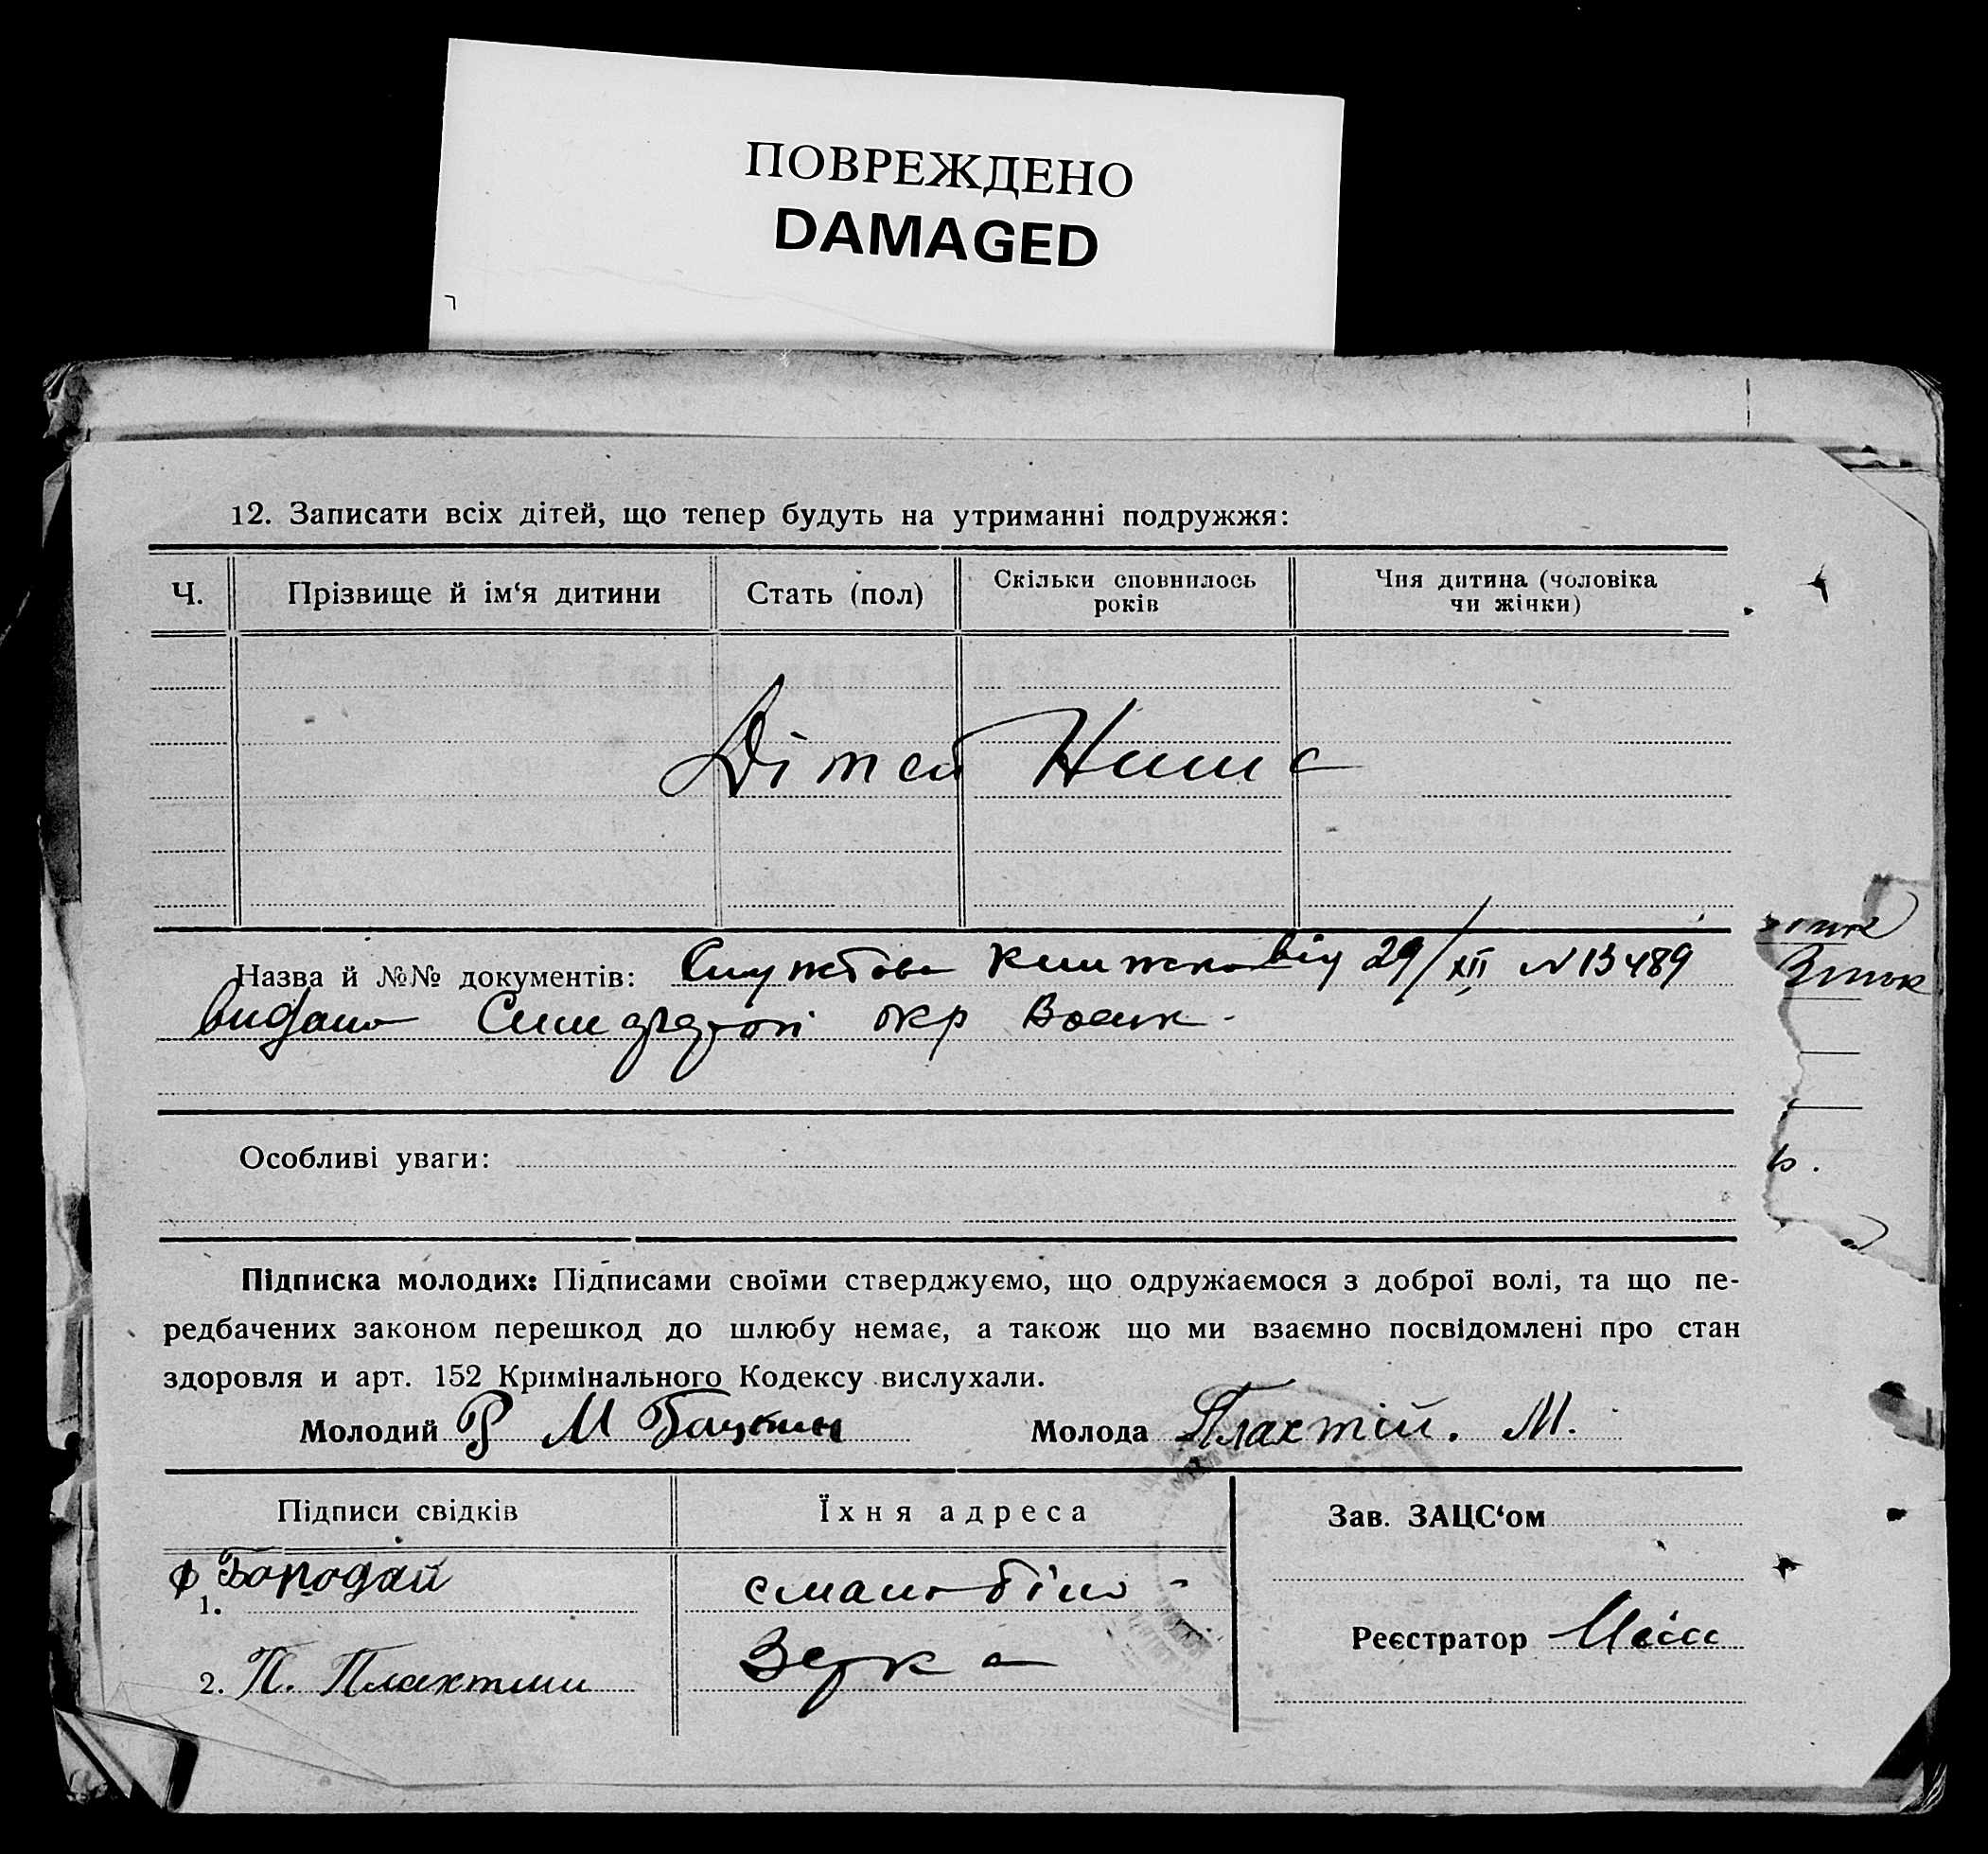 ПОВРЕЖДЕНО
DAMAGED
12. Записати всіх дітей, що тепер будуть на утриманні подружжя:
Ч. Прізвище й ім‘я дитини Стать (пол) Скільки сповнилось років Чия дитина (чоловіка чи жінки)
Дітей Нима
Назва й №№ документів: Службова книжка від 29/XII N 13489
видана окр Воєнк-
Особливі уваги:
Підписка молодих: Підписами своїми стверджуємо, що одружаємося з доброї волі, та що пе-
редбачених законом перешкод до шлюбу немає, а також що ми взаємно посвідомлені про стан
здоровля и арт. 152 Кримінального Кодексу вислухали.
Молодий М Молода Плахтій. М.
Підписи свідків Їхня адреса Зав. ЗАЦС‘ом
Ф Бородай
1.
Реєстратор
2. П. Плахтии